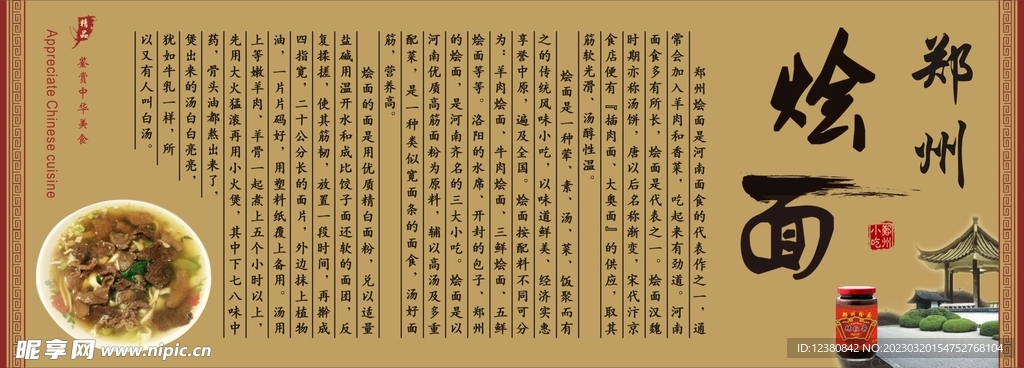 郑州
烩面
郑州
小吃
郑州烩面是河南面食的代表作之一，通
常会加入羊肉和香菜，吃起来有劲道。河南
面食多有所长，烩面是代表之一。烩面汉魏
时期亦称汤饼，唐以后名称渐变，宋代汴京
食店便有『插肉面、大奥面』的供应，取其
筋软光滑、汤醇性温。
烩面是一种荤、素、汤、菜、饭聚而有
之的传统风味小吃，以味道鲜美，经济实惠
享誉中原，遍及全国。烩面按配料不同可分
为：羊肉烩面、牛肉烩面、三鲜烩面、五鲜
烩面等等。洛阳的水席、开封的包子，郑州
的烩面，是河南齐名的三大小吃。烩面是以
河南优质高筋面粉为原料，辅以高汤及多重
配菜，是一种类似宽面条的面食，汤好面
筋，营养高。
烩面的面是用优质精白面粉，兑以适量
盐碱用温开水和成比饺子面还软的面团，反
复揉搓，使其筋韧，放置一段时间，再擀成
四指宽，二十公分长的面片，外边抹上植物
油，一片片码好，用塑料纸覆上备用。汤用
上等嫩羊肉、羊骨一起煮上五个小时以上，
先用大火猛滚再用小火煲，其中下七八味中
药，骨头油都熬出来了，
煲出来的汤白白亮亮，
犹如牛乳一样，所
以又有人叫白汤。
精品
鉴赏中华美食
Appreciate Chinese cuisine
昵享网 www.nipic.cn
ID:12380842 NO:20230320154752768104